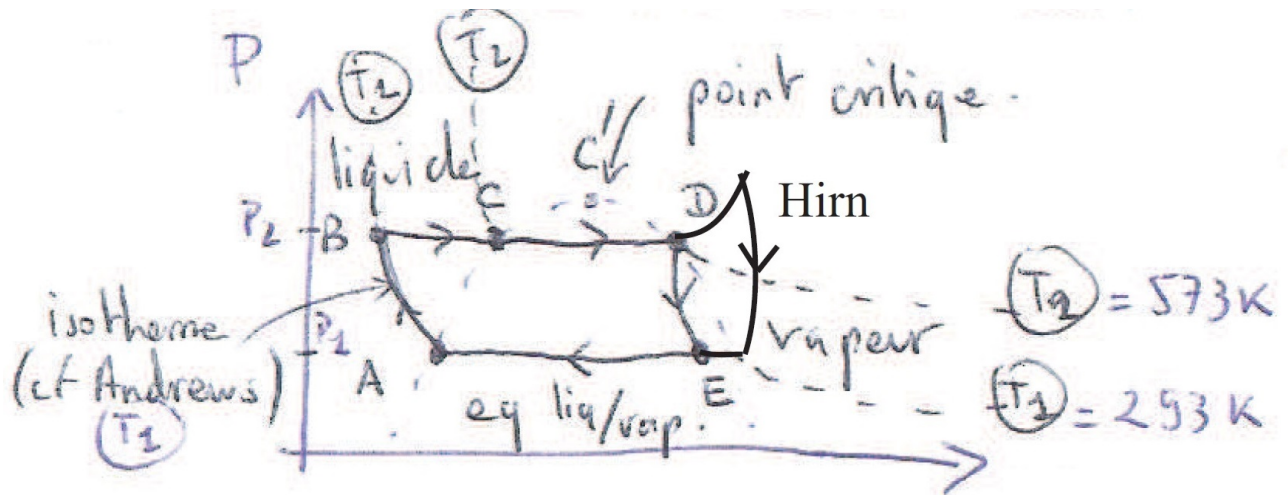 P
T1
T2
point critique.
liquide
C
C'
D
Hirn
P2
B
T2 = 573K
isotherme
P1
vapeur
(cf Andrews)
A
E
T1 = 293K
T1
eq liq/vap.